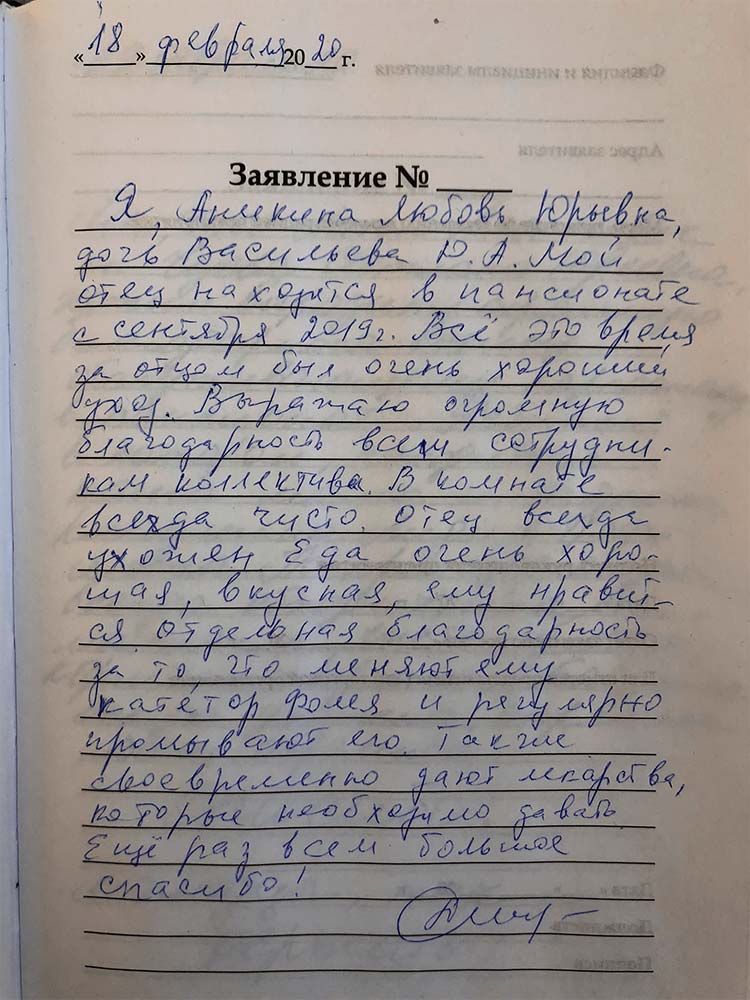 «18» февраля 2020 г.
Заявление № ____
Я, Аникина Любовь Юрьевна,
дочь Васильева Ю.А. Мой
отец находится в пансионате
с сентября 2019г. Всё это время
за отцом был очень хороший
уход. Выражаю огромную
благодарность всем сотрудни-
кам коллектива. В комнате
всегда чисто. Отец всегда
ухожен. Еда очень хоро-
шая, вкусная, ему нравит-
ся. Отдельная благодарность
за то, что меняют ему
катетор Фолея и регулярно
промывают его. Также
своевременно дают лекарства,
которые необходимо давать.
Ещё раз всем большое
спасибо!